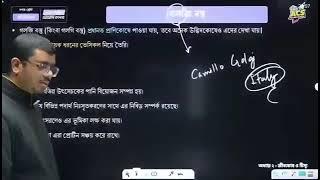 গলজি বস্তু
গলজি বস্তু (কিংবা গলগি বস্তু) প্রধানত প্রাণিকোষে পাওয়া যায়, তবে অনেক উদ্ভিদকোষেও এদের দেখা যায়।
ধরনের ভেসিকল নিয়ে তৈরি।
Camillo Golgi
Italy
উৎসেচকের পানি বিয়োজন সম্পন্ন হয়।
বিভিন্ন পদার্থ নিঃসৃতকরণের সাথে এর নিবিড় সম্পর্ক রয়েছে।
এর ভূমিকা লক্ষ করা যায়।
এরা প্রোটিন সঞ্চয় করে রাখে।
অধ্যায় ২ - জীবকোষ ও টিস্যু
ACS